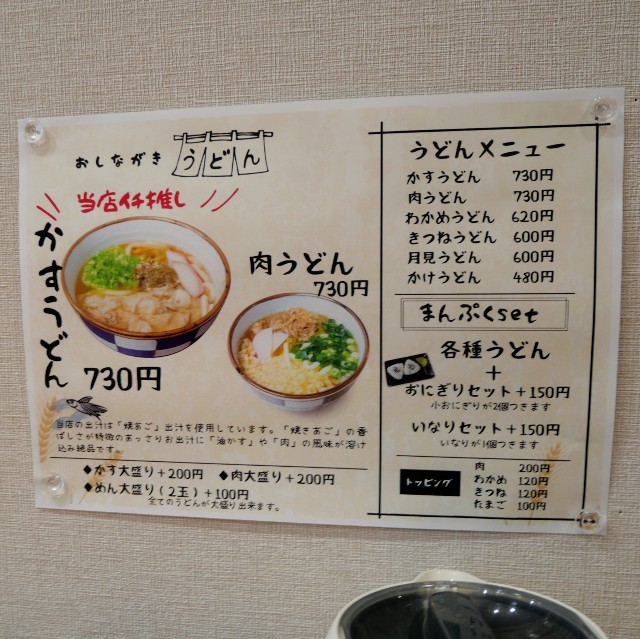 おしながき うどん
当店イチ推し
かすうどん
730円
肉うどん
730円
当店の出汁は「焼あご」出汁を使用しています。「焼きあご」の香
ばしさが特徴のあっさりお出汁に「油かす」や「肉」の風味が溶け
込み絶品です。
◆かす大盛り+200円 ◆肉大盛り+200円
◆めん大盛り(2玉)+100円
全てのうどんが大盛り出来ます。
うどんメニュー
かすうどん 730円
肉うどん 730円
わかめうどん 620円
きつねうどん 600円
月見うどん 600円
かけうどん 480円
まんぷくset
各種うどん
+
おにぎりセット+150円
小おにぎりが2個つきます
いなりセット+150円
いなりが1個つきます
トッピング
肉 200円
わかめ 120円
きつね 120円
たまご 100円